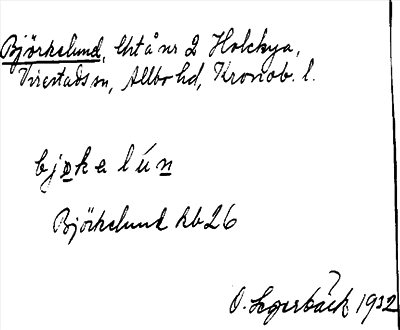 Björkelund, Urtå nr 2 Holckya,
Virestads sn, Allbo hd, Kronob. l.
bjøkelún
Björkelund Rb 26
O. Legerbäck 1932